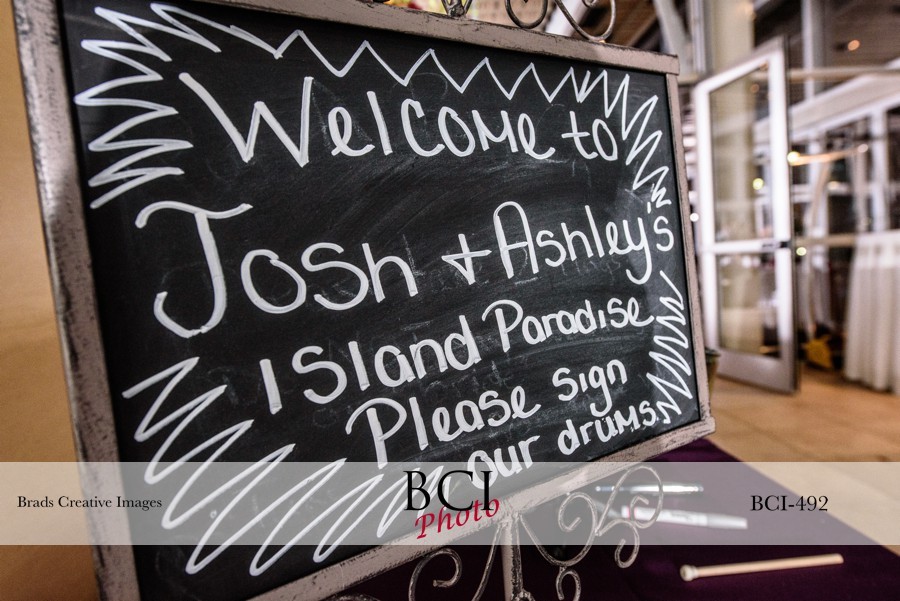 Welcome to
Josh + Ashley's
Island Paradise
Please sign
our drums.
Brads Creative Images
BCI
Photo
BCI-492